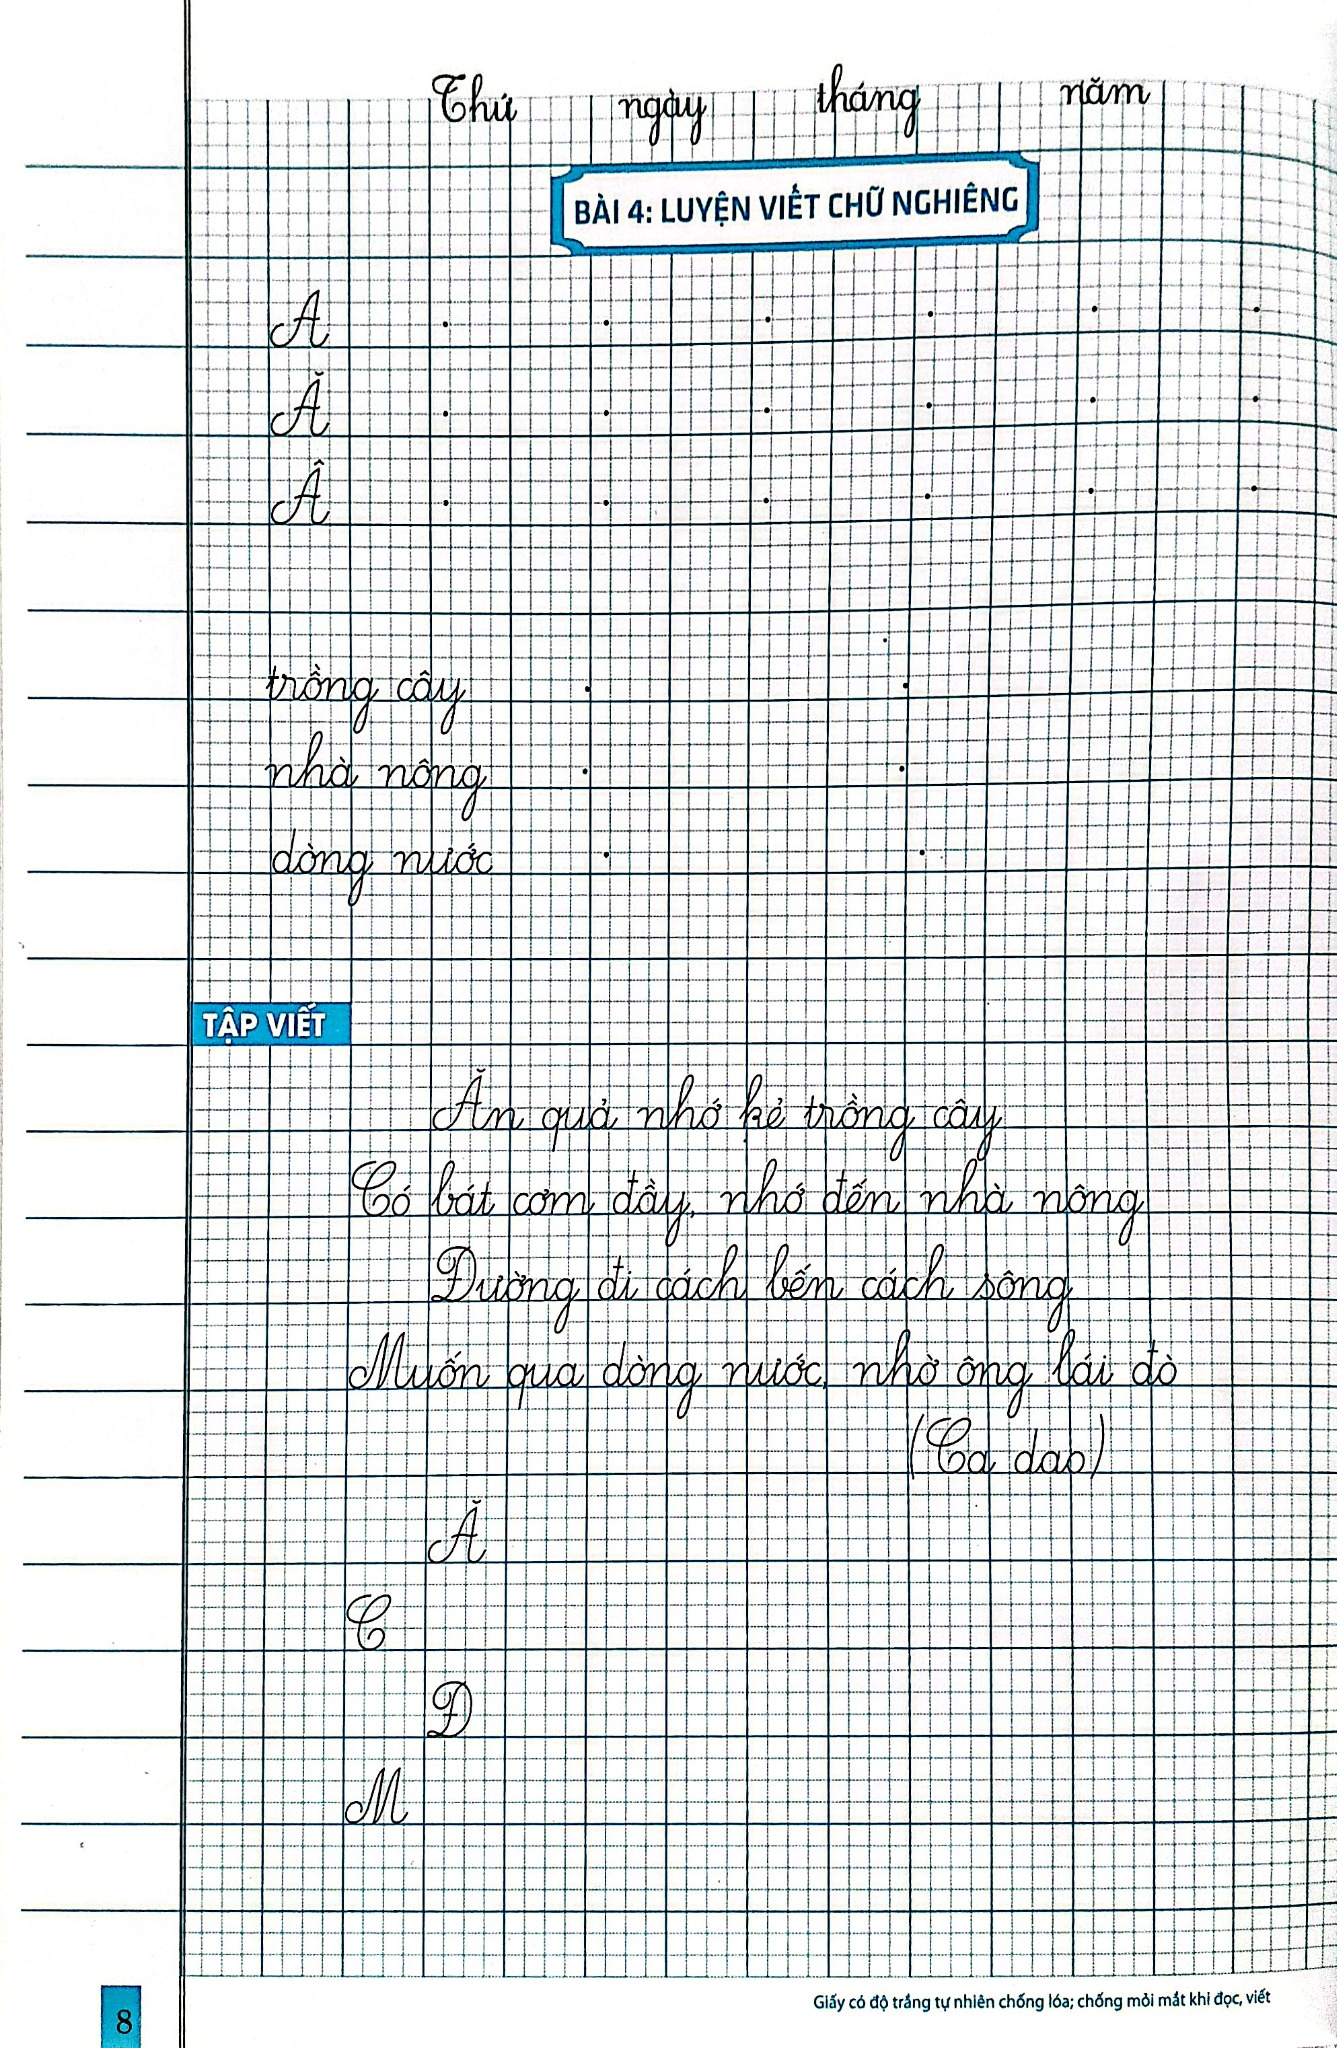 Thứ ngày tháng năm
BÀI 4: LUYỆN VIẾT CHỮ NGHIÊNG
A
Ă
Â
trồng cây
nhà nông
dòng nước
TẬP VIẾT
Ăn quả nhớ kẻ trồng cây
Có bát cơm đầy, nhớ đến nhà nông
Đường đi cách bến cách sông
Muốn qua dòng nước, nhờ ông lái đò
(Ca dao)
Ă
C
Đ
M
Giấy có độ trắng tự nhiên chống lóa; chống mỏi mắt khi đọc, viết
8